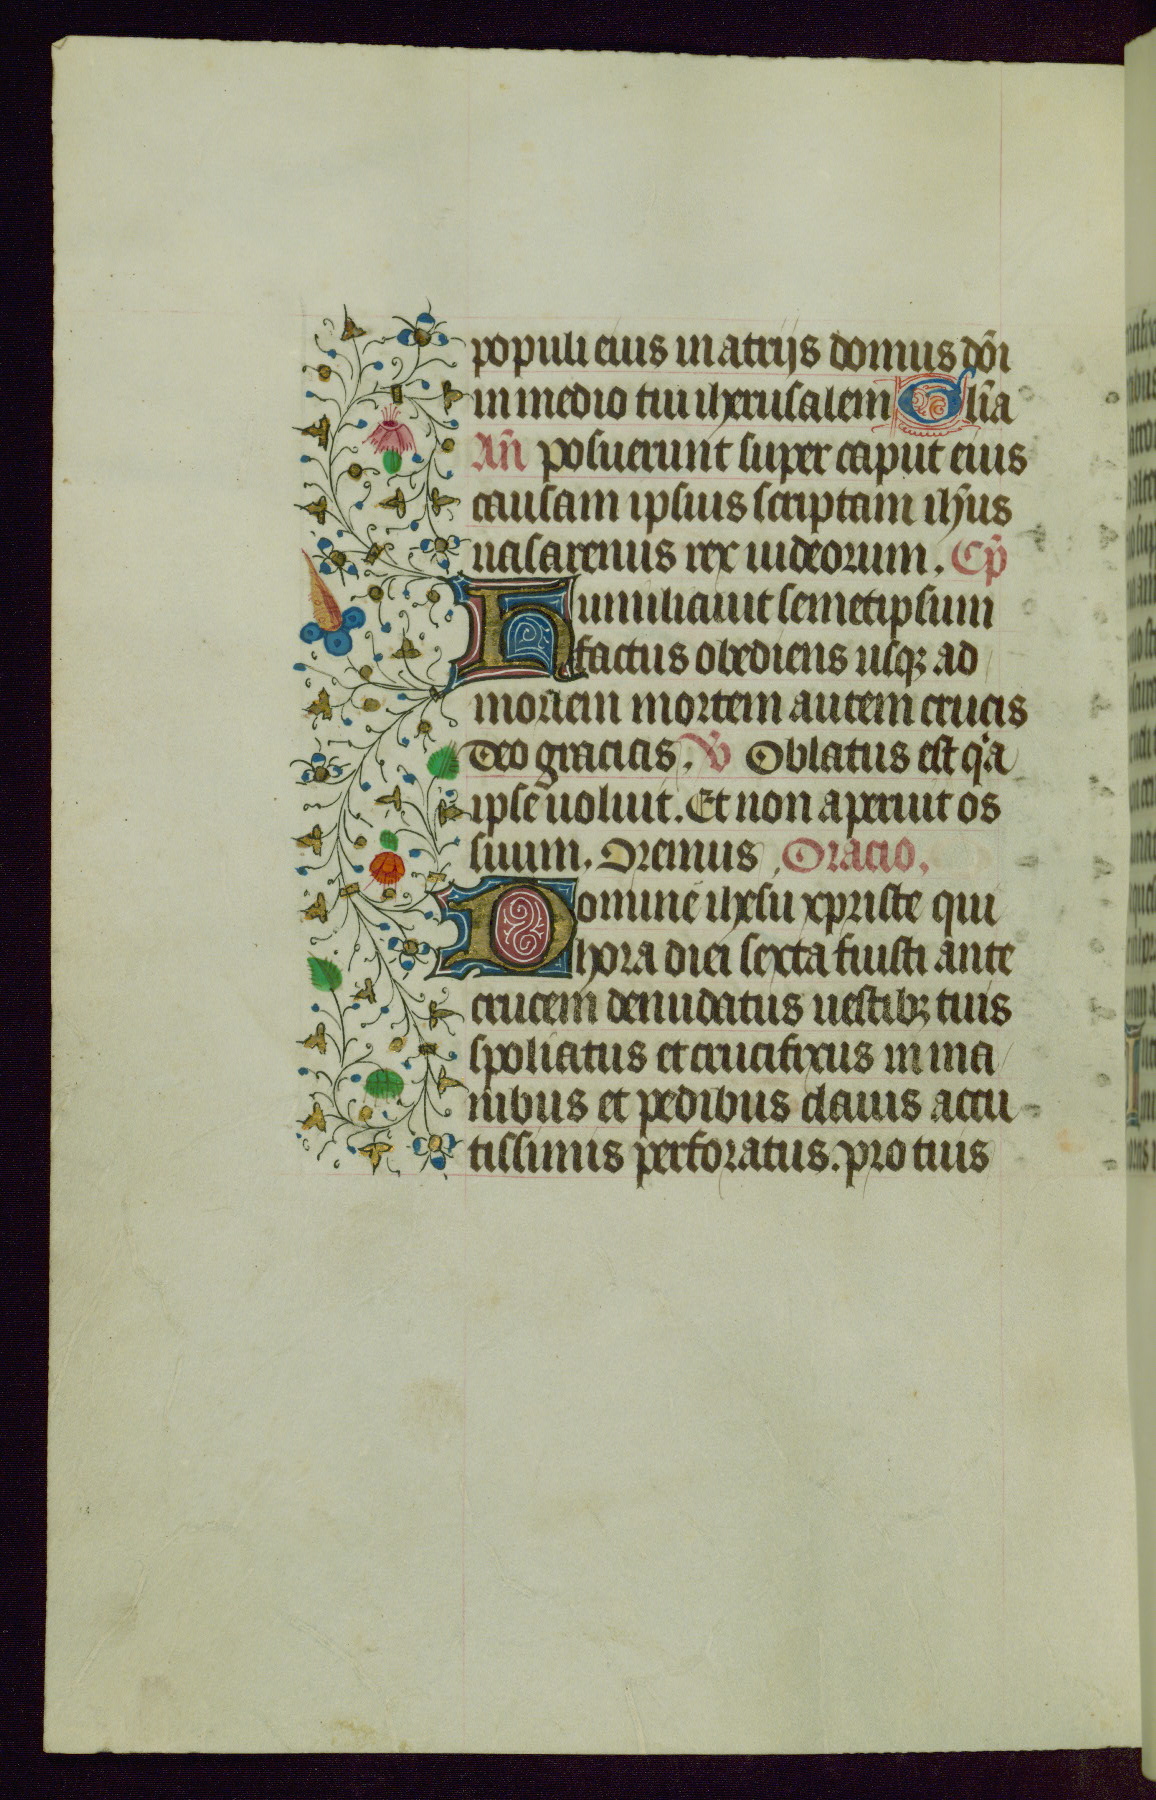 populi eius in atrijs domus dōi
in medio tui iherusalem Gl̄ia
An̄ posuerunt super caput eius
causam ipsius scriptam ih̄us
nasarenus rex iudeorum. Cp̄
Humiliauit semetipsum
factus obediens usqꝫ ad
mortem mortem autem crucis
Deo gracias. V Oblatus est q̄a
ipse uoluit. Et non aperuit os
suum. Oremus. Oracio.
Domine ihesu xpriste qui
hora diei sexta fuisti ante
crucem denudatus uestibꝫ tuis
spoliatus et crucifixus in ma
nibus et pedibus clauis accu
tissimis perforatus. pro tuis